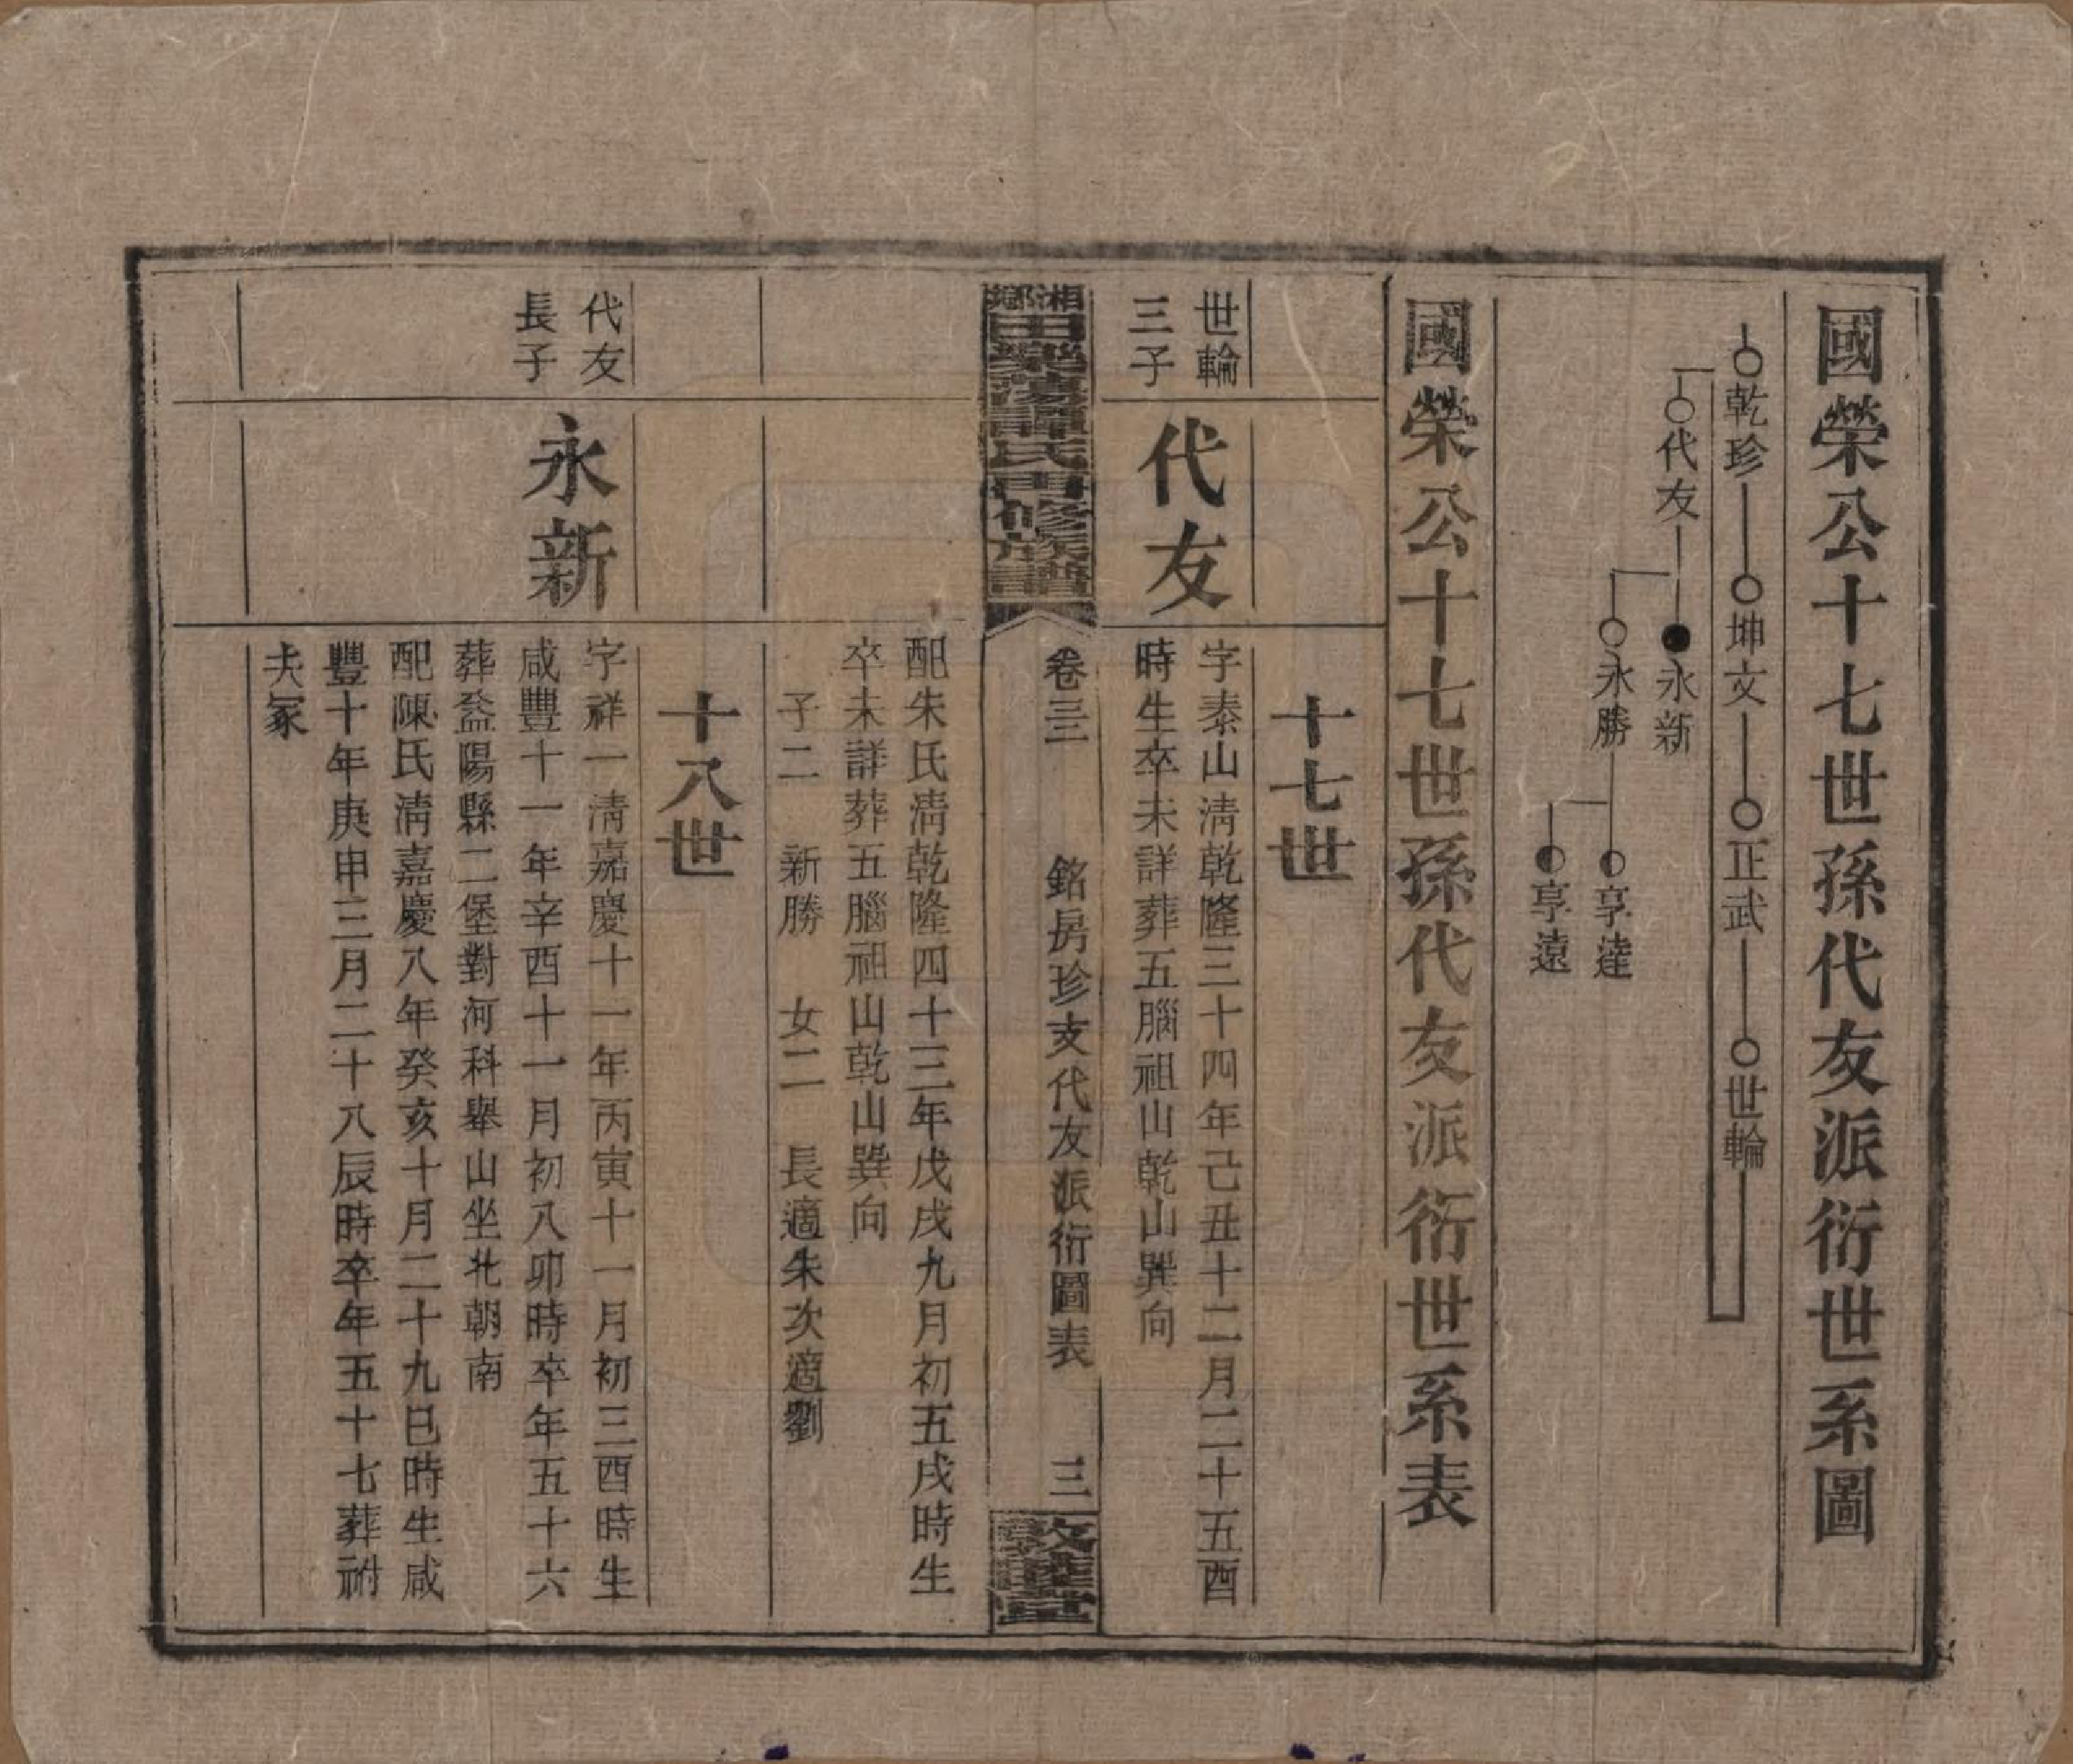 國榮公十七世孫代友派衍世系圖
乾珍 坤文 正武 世輪
代友
永新
永勝
享達
享遠
國榮公十七世孫代友派衍世系表
十七世
世輪
三子
代友
字泰山淸乾隆三十四年己丑十二月二十五酉
時生卒未詳葬五腦祖山乾山巽向
湘鄕
田樂灣譚氏再修族譜
卷三 銘房珍支代友派衍圖表 三
敦睦堂
配朱氏淸乾隆四十三年戊戌九月初五戌時生
卒未詳葬五腦祖山乾山巽向
子二 新勝 女二 長適朱次適劉
十八世
代友
長子
永新
字祥一淸嘉慶十一年丙寅十一月初三酉時生
咸豐十一年辛酉十一月初八卯時卒年五十六
葬益陽縣二堡對河科舉山坐北朝南
配陳氏淸嘉慶八年癸亥十月二十九巳時生咸
豐十年庚申三月二十八辰時卒年五十七葬祔
夫冢